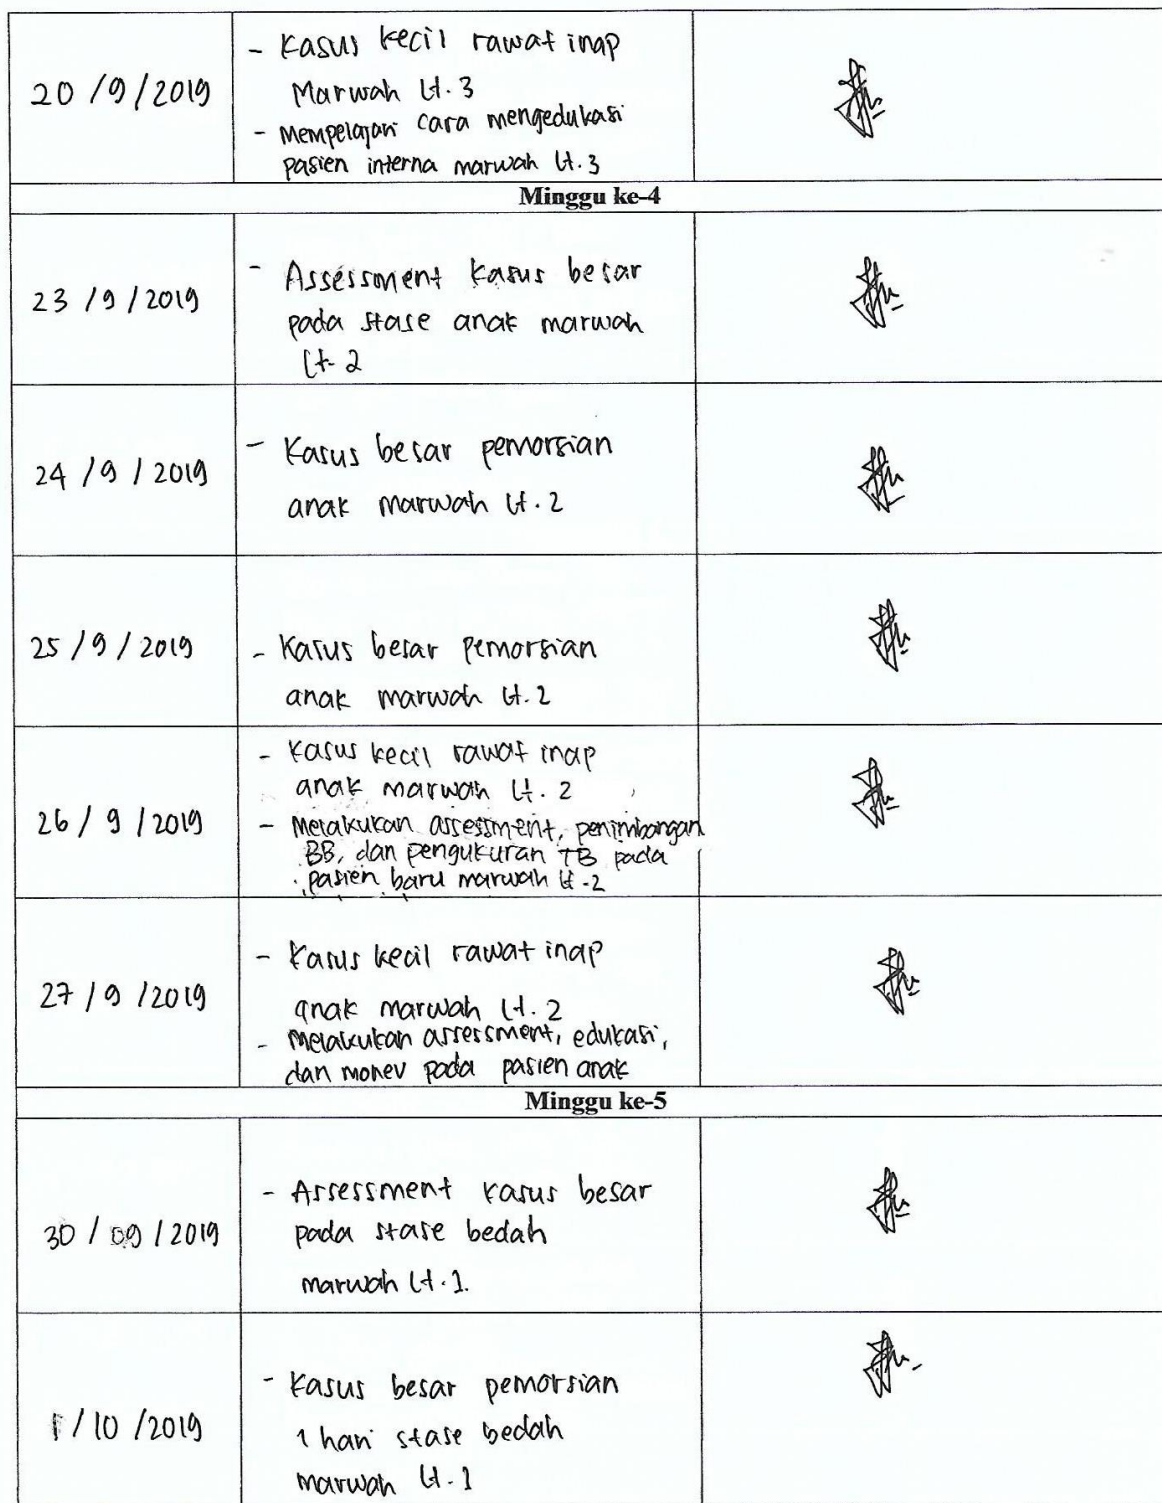 20/9/2019
- Kasus kecil rawat inap
Marwah Lt.3
- Mempelajari cara mengedukasi
pasien interna marwah Lt.3
Minggu ke-4
23/9/2019
- Assessment kasus besar
pada stase anak marwah
Lt.2
24/9/2019
- Kasus besar pemorsian
anak marwah Lt.2
25/9/2019
- Kasus besar pemorsian
anak marwah Lt.2
26/9/2019
- Kasus kecil rawat inap
anak marwah Lt.2
- Melakukan assessment, penimbangan
BB, dan pengukuran TB pada
pasien baru marwah Lt.2
27/9/2019
- Kasus kecil rawat inap
anak marwah Lt.2
- Melakukan assessment, edukasi,
dan monev pada pasien anak
Minggu ke-5
30/09/2019
- Assessment kasus besar
pada stase bedah
marwah Lt.1.
1/10/2019
- Kasus besar pemorsian
1 hari stase bedah
marwah Lt.1